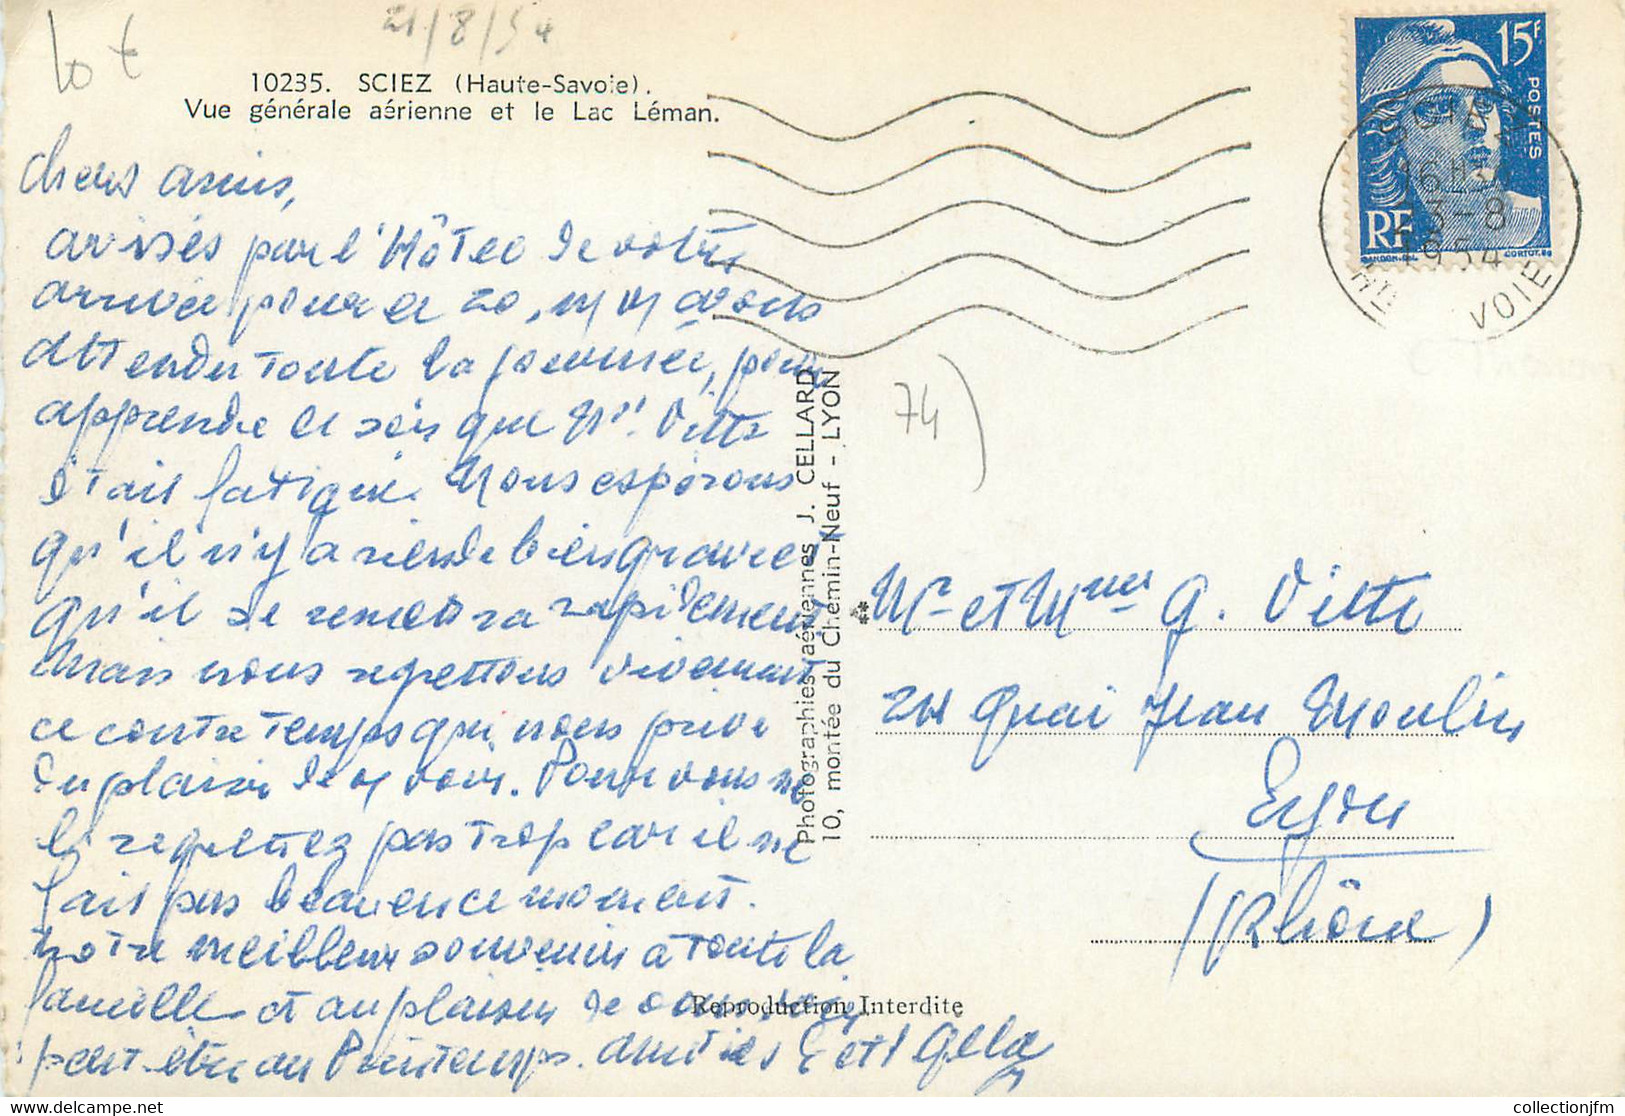 lot
21/8/54
10235. SCIEZ (Haute-Savoie).
Vue générale aérienne et le Lac Léman.
15F
POSTES
RF
GANDON.DEL
CORTOT.SC
16H30
3-8
1954
VOIE
74)
Chers amis,
avisés par l'Hôtel de votre
arrivée pour ce 20, n/ n/ avons
attendu toute la journée, pour
apprendre ce soir que Mr. Vitte
était fatigué. Nous espérons
qu'il n'y a rien de bien grave et
qu'il se remettra rapidement.
Mais nous regrettons vivement
ce contretemps qui nous prive
du plaisir de v/ voir. Pour vous ne
le regrettez pas trop car il ne
fait pas beau en ce moment.
Notre meilleur souvenir à toute la
famille et au plaisir de vous voir
peut-être au Printemps. Amitiés
Photographies aériennes J. CELLARD
10, montée du Chemin-Neuf - LYON
Mr et Mme G. Vitte
24 Quai Jean Moulin
Lyon
(Rhône)
Reproduction Interdite
collectionjfm